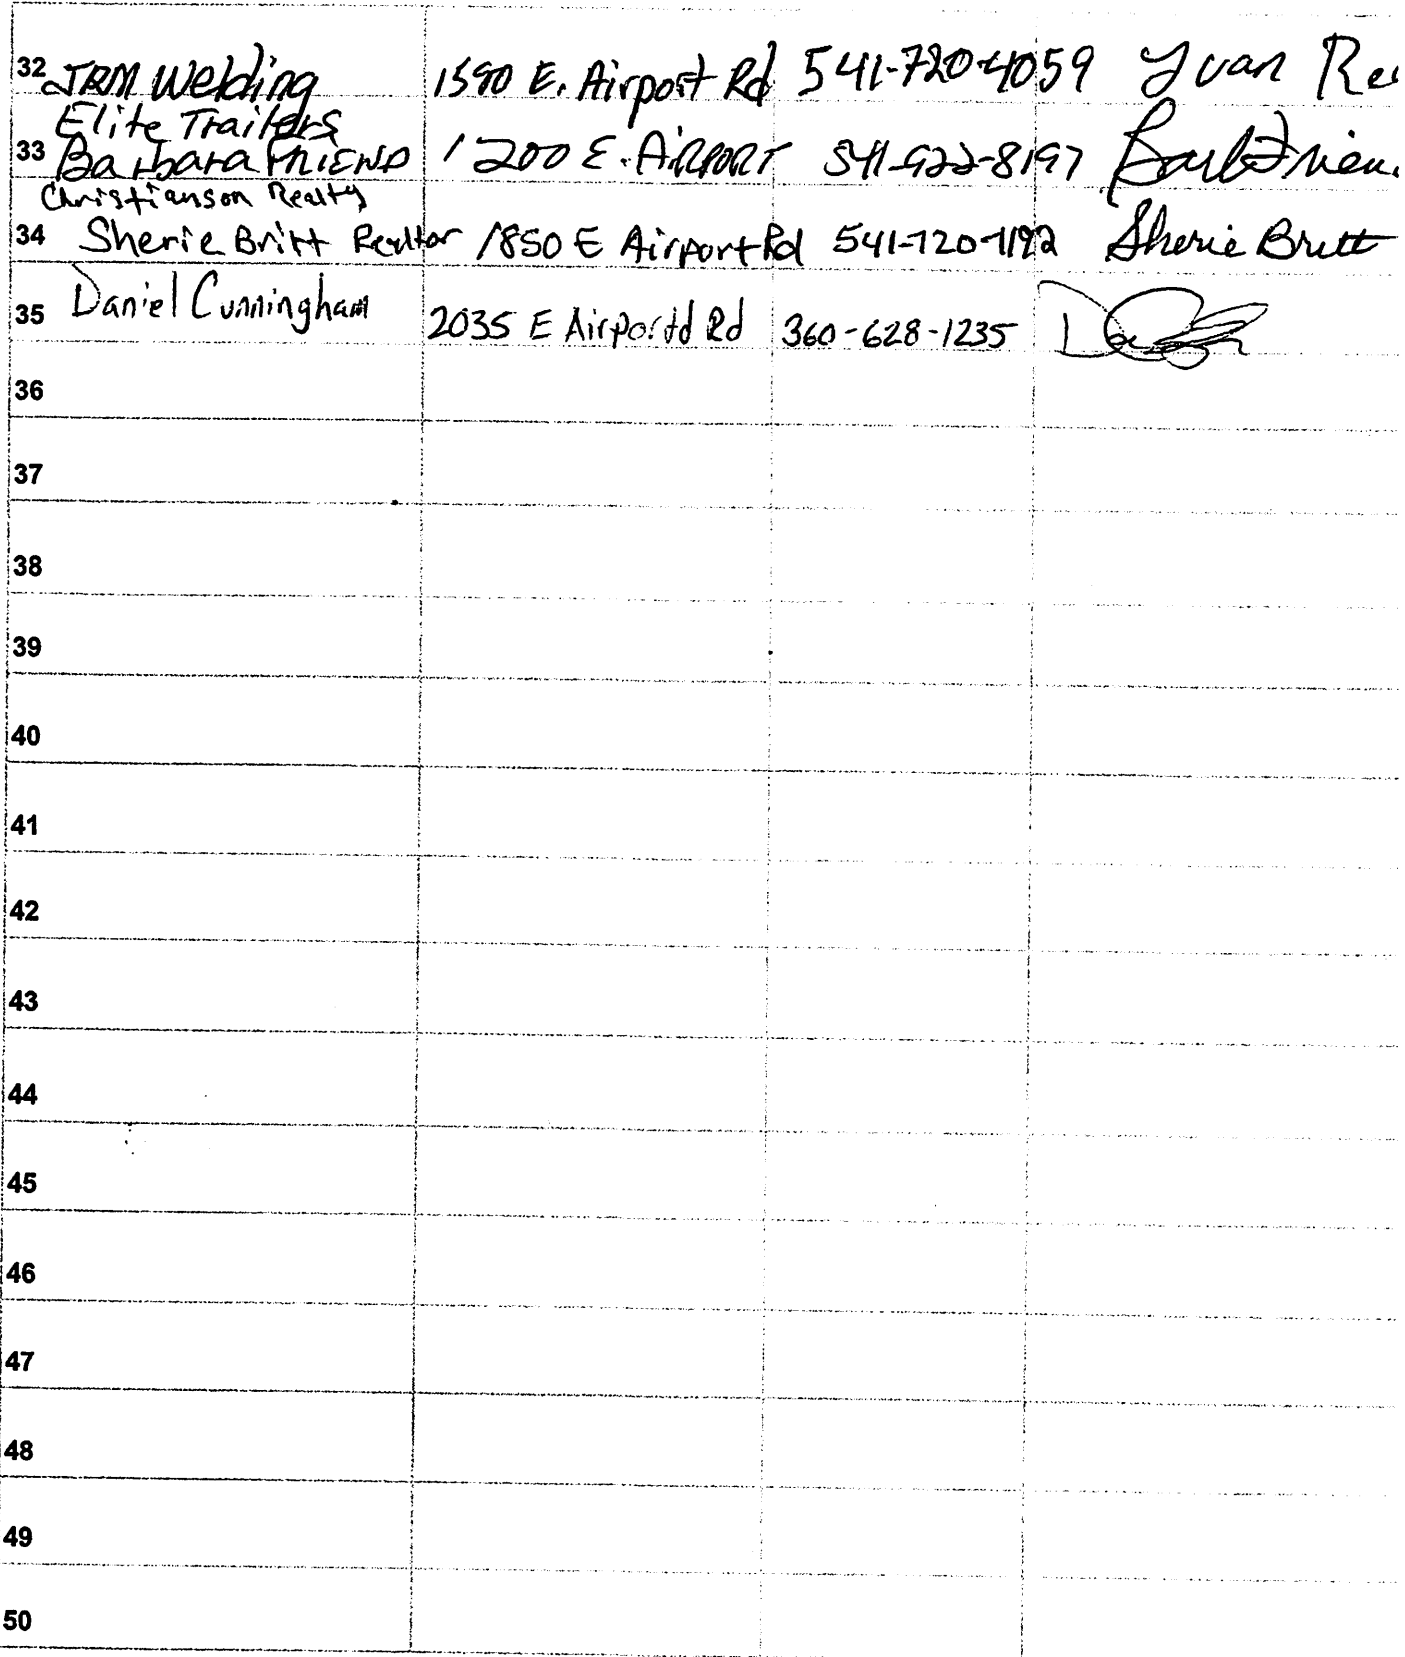 32 JRM Welding 1590 E. Airport Rd 541-720-4059 Yvan
Elite Trailers
33 Barbara FRIEND 1200 E. AIRPORT 541-922-8197 Barb Frien
Christianson Realty
34 Sherie Britt Realtor 1850 E Airport Rd 541-720-7192 Sherie Britt
35 Daniel Cunningham 2035 E Airportd Rd 360-628-1235
36
37
38
39
40
41
42
43
44
45
46
47
48
49
50